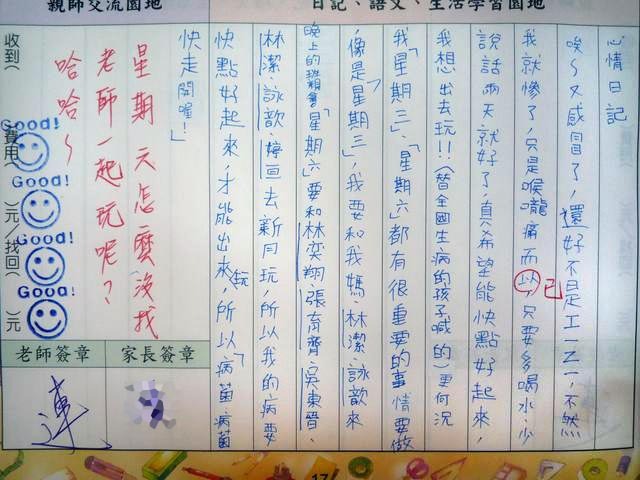 親師交流園地
日記、語文、生活學習園地
心情日記
唉～又感冒了，還好不是H1N1，不然
我就慘了，只是喉嚨痛而以，只要多喝水、少
已
說話兩天就好了，真希望能快點好起來，
我想出去玩!!(替全國生病的孩子喊的)更何況
我「星期三」、「星期六」都有很重要的事情要做
，像是「星期三」，我要和我媽、林潔、詠歆來
晚上的班親會「星期六」要和林奕翔、張育齊、吳東晉、
林潔、詠歆、婷宣去新月玩，所以我的病要
快點好起來，才能出來玩，所以「病菌病菌
快走開喔！」
星期天怎麼沒找
老師一起玩呢？
哈哈～
Good!
Good!
Good!
Good!
收到(
費用(
)元/找回(
)元
老師簽章
家長簽章
17